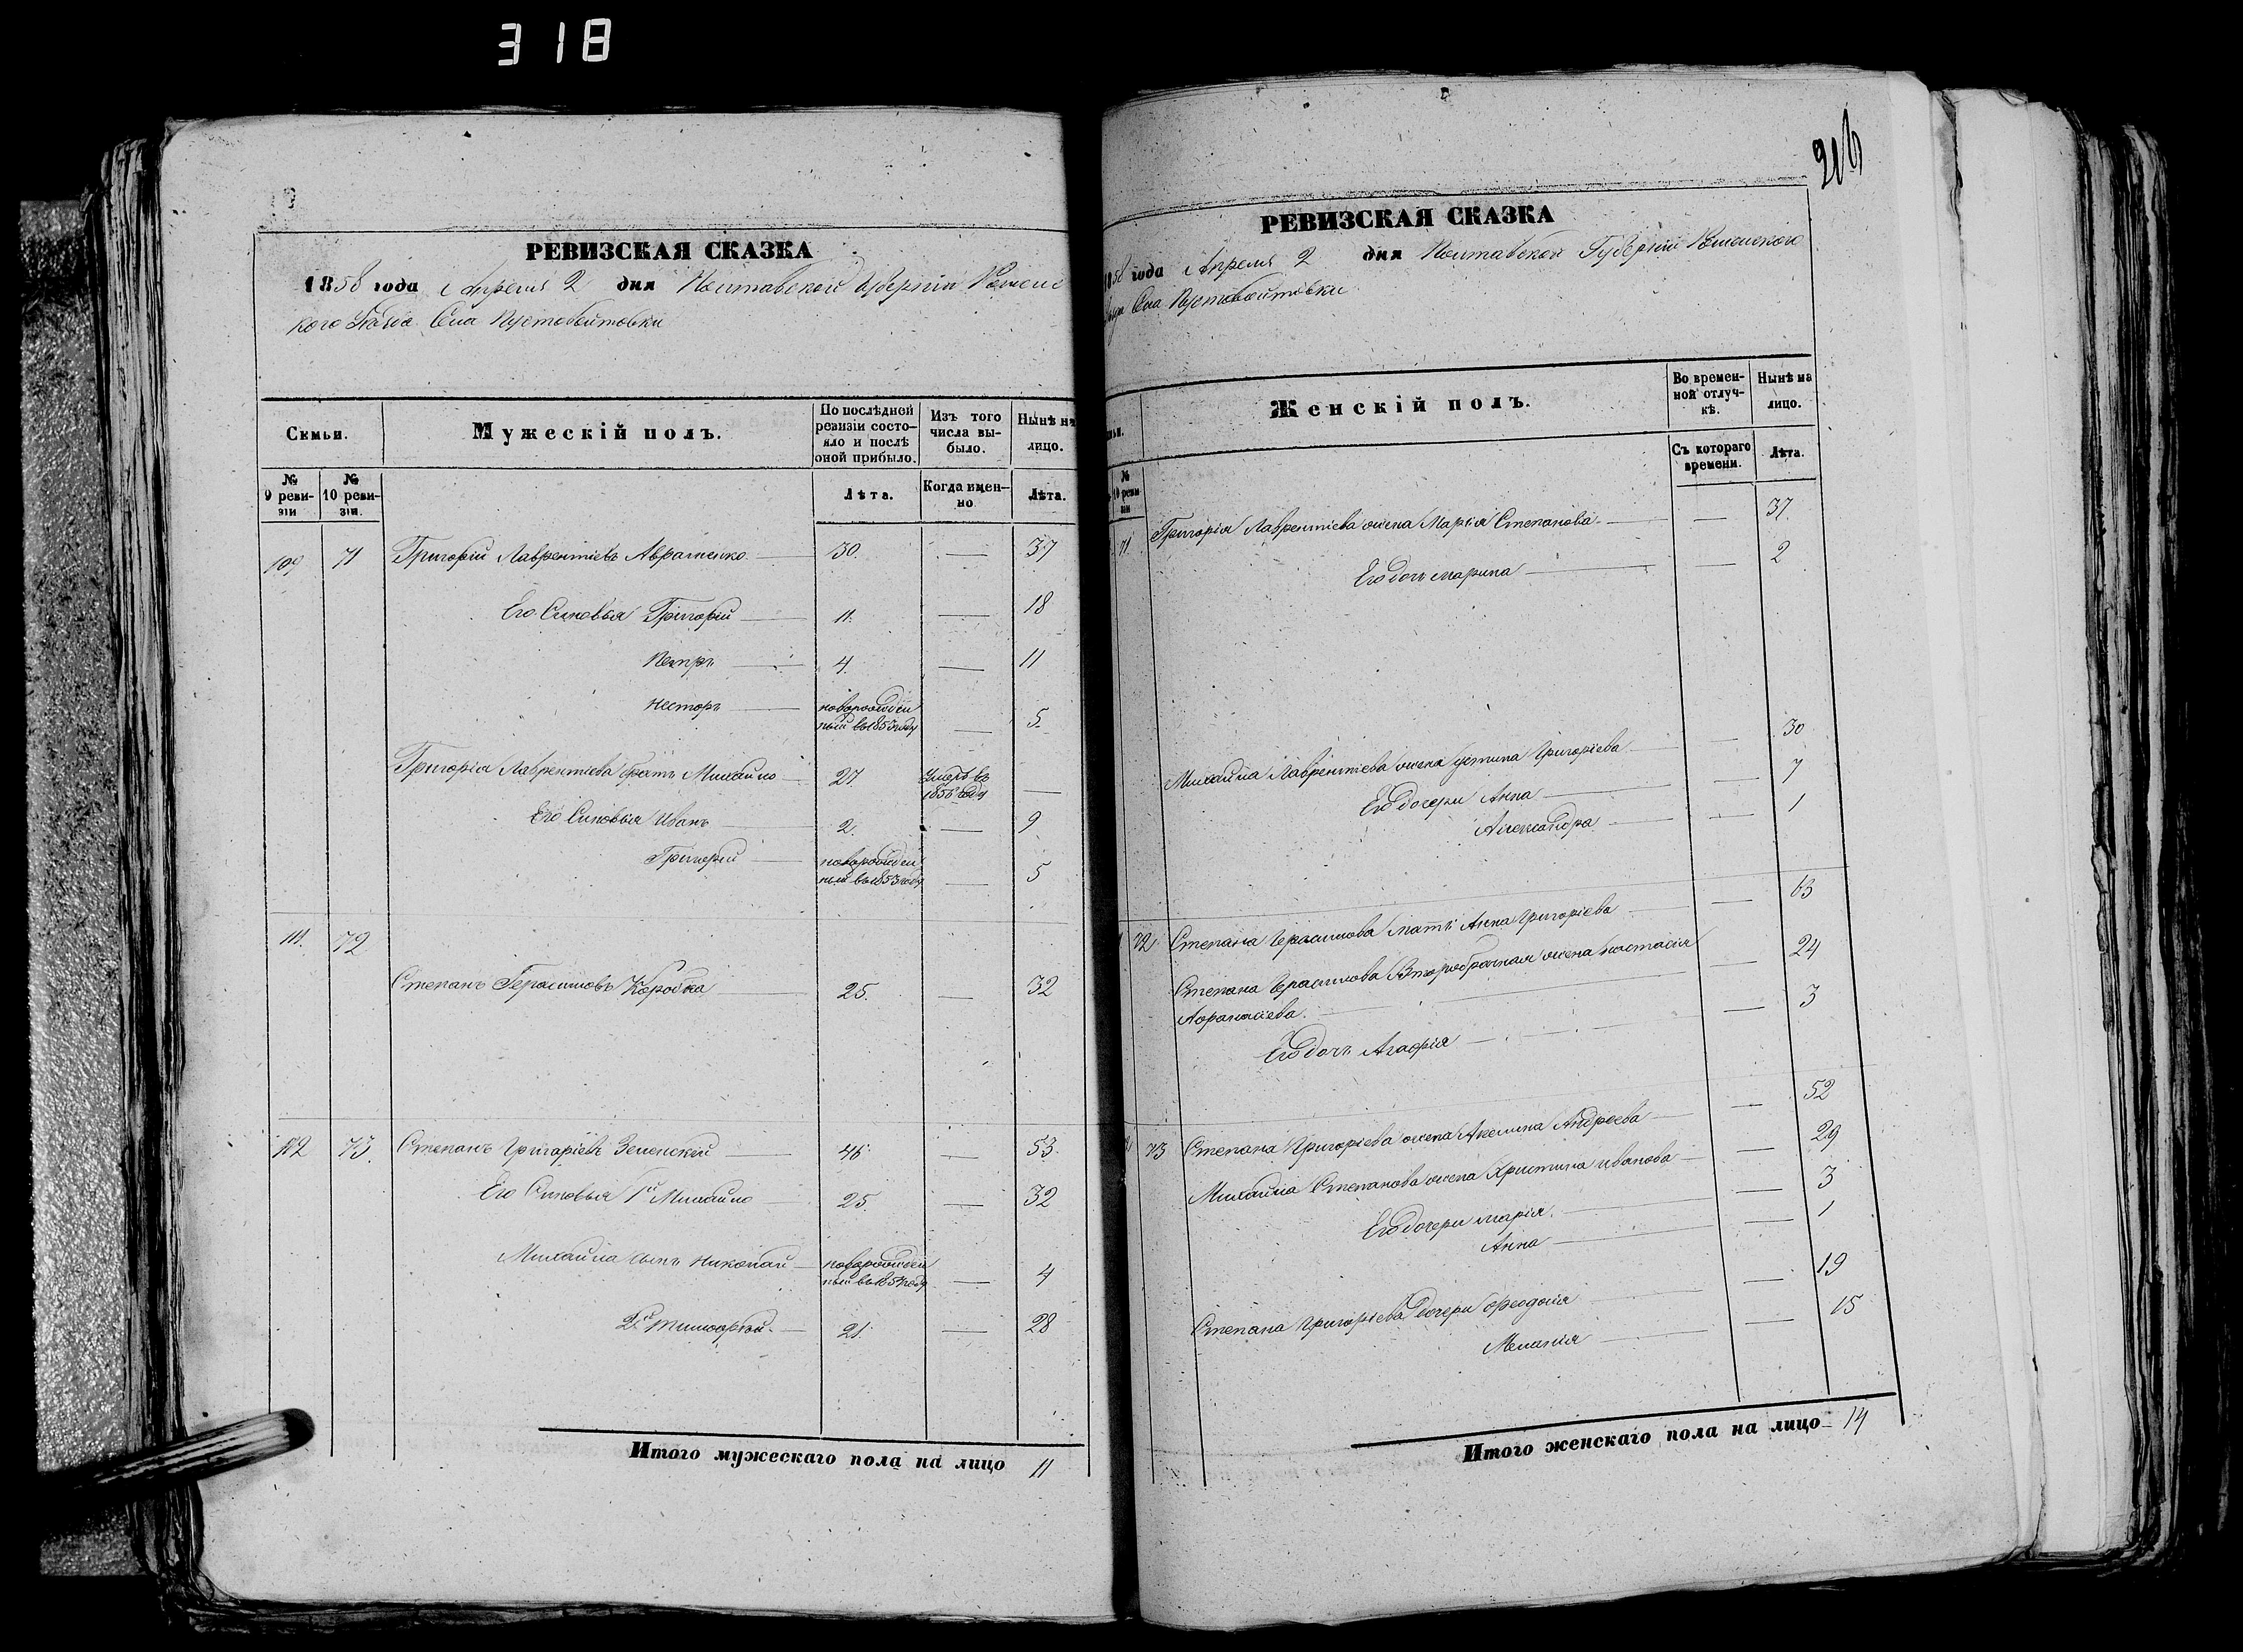 318
РЕВИЗСКАЯ СКАЗКА
1858 года Апреля 2 дня Полтавской Губернiи Роменс
кого Уезда Села Пустовойтовки
Семьи.
Мужескiй полъ.
По послѣдней ревизiи состо-
яло и послѣ
оной прибыло.
Изъ того
числа вы-
было.
Нынѣ на
лицо.
№
9 реви-
зiи
№
10 реви-
зiи.
Лѣта.
Когда имен-
но
Лѣта.
109 71 Григорiй Лаврентiевъ Авраменко 30. — 37
Его Сыновья Григорiй 11. — 18
Петръ 4. — 11
Несторъ новорожден
ный въ 1853 году — 5.
Григорiя Лаврентiева братъ Михайло 27. Умеръ въ
1856 году —
Его Сыновья Иванъ 2. — 9
Григорiй новорожден
ный въ 1853 году — 5
111. 72
Степанъ Герасимовъ Коробка 25. — 32
112 73. Степанъ Григорiевъ Зеленскiй 46. — 53.
Его Сыновья 1й Михайло 25. — 32
Михайла сынъ Николай новорожден
ный въ 1854 году — 4
2й Тимофей 21. — 28
Итого мужескаго пола на лицо 11
РЕВИЗСКАЯ СКАЗКА
1858 года Апреля 2 дня Полтавской Губернiи Роменского
Села Пустовойтовки
Женскiй полъ.
Во времен-
ной отлуч-
кѣ.
Нынѣ на
лицо.
№
10 реви
зiи
Съ котораго
времени.
Лѣта.
71 Григорiя Лаврентiева жена Марья Степанова — 37.
Его дочь Марина — 2
Михайла Лаврентiева жена Устина Григорiева — 30
Его дочери Анна — 7
Александра — 1
72 Степана Герасимова мать Анна Григорiева — 63
Степана Герасимова Второбрачная жена Настасiя — 24
Афанасiева.
Его дочь Агафiя — 3
73 Степана Григорiева жена Акелина Андреева — 52
Михайла Степанова жена Христина Иванова — 29
Его дочери Марiя — 3
Анна — 1
Степана Григорiева дочери Феодосiя — 19
Меланiя — 15
Итого женскаго пола на лицо 14